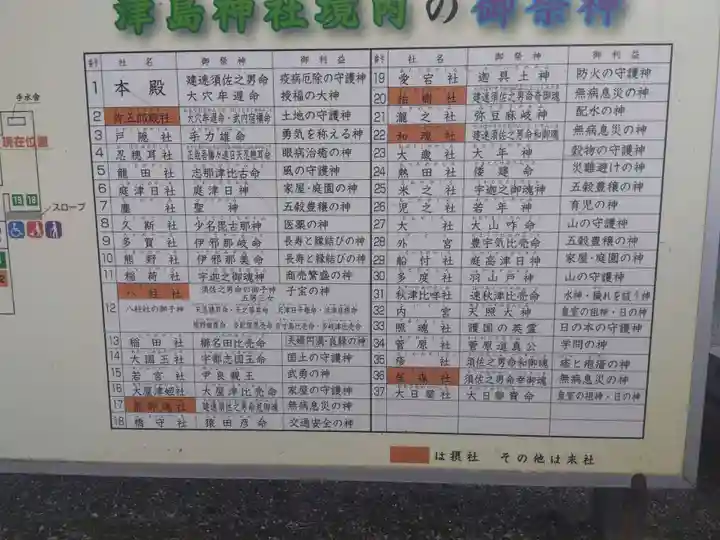 津島神社境内の御祭神
手水舎
現在位置
スロープ
番号 社名 御祭神 御利益
1 本殿 建速須佐之男命 疫病厄除の守護神
大穴牟遅命 授福の大神
2 弥五郎殿社 大穴牟遅命・武内宿禰命 土地の守護神
3 戸隠社 手力雄命 勇気を称える神
4 忍穂耳社 正哉吾勝々速日天忍穂耳命 眼病治癒の神
5 龍田社 志那津比古命 風の守護神
6 庭津日社 庭津日神 家屋・庭園の神
7 社 聖神 五穀豊穣の神
8 久斯社 少名毘古那神 医薬の神
9 多賀社 伊邪那岐命 長寿と縁結びの神
10 熊野社 伊邪那美命 長寿と縁結びの神
11 稲荷社 宇迦之御魂神 商売繁盛の神
12 八柱社 須佐之男命の御子神 五男三女 子宝の神
八柱社の御子神
13 稲田社 櫛名田比売命 夫婦円満・良縁の神
14 大国玉社 宇都志国玉命 国土の守護神
15 若宮社 尹良親王 武勇の神
16 大屋津姫社 大屋津比売命 家屋の守護神
17 荒御魂社 建速須佐之男命荒御魂 無病息災の神
18 橋守社 猿田彦命 交通安全の神
番号 社名 御祭神 御利益
19 愛宕社 迦具土神 防火の守護神
20 社 建速須佐之男命奇御魂 無病息災の神
21 瀧之社 弥豆麻岐神 配水の神
22 和魂社 建速須佐之男命和御魂 無病息災の神
23 大歳社 大年神 穀物の守護神
24 熱田社 倭建命 災難避けの神
25 米之社 宇迦之御魂神 五穀豊穣の神
26 児之社 若年神 育児の神
27 大社 大山咋命 山の守護神
28 外宮 豊宇気比売命 五穀豊穣の神
29 船付社 庭高津日神 家屋・庭園の神
30 多度社 羽山戸神 山の守護神
31 秋津比咩社 速秋津比売命 水神・穢れを祓う神
32 内宮 天照大神 皇室の祖神・日の神
33 照魂社 護国の英霊 日の本の守護神
34 菅原社 菅原道真公 学問の神
35 社 須佐之男命和御魂 瘧と疱瘡の神
36 社 須佐之男命幸御魂 無病息災の神
37 大日孁社 大日孁貴命 皇室の祖神・日の神
は摂社 その他は末社